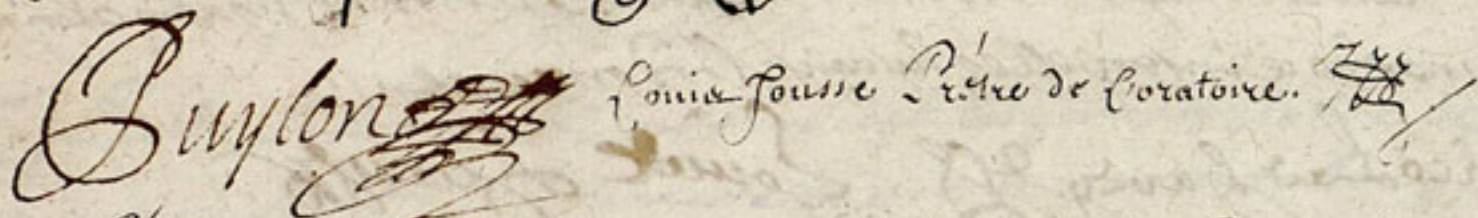 Puylon Louis Jousse Prêtre de Loratoire.